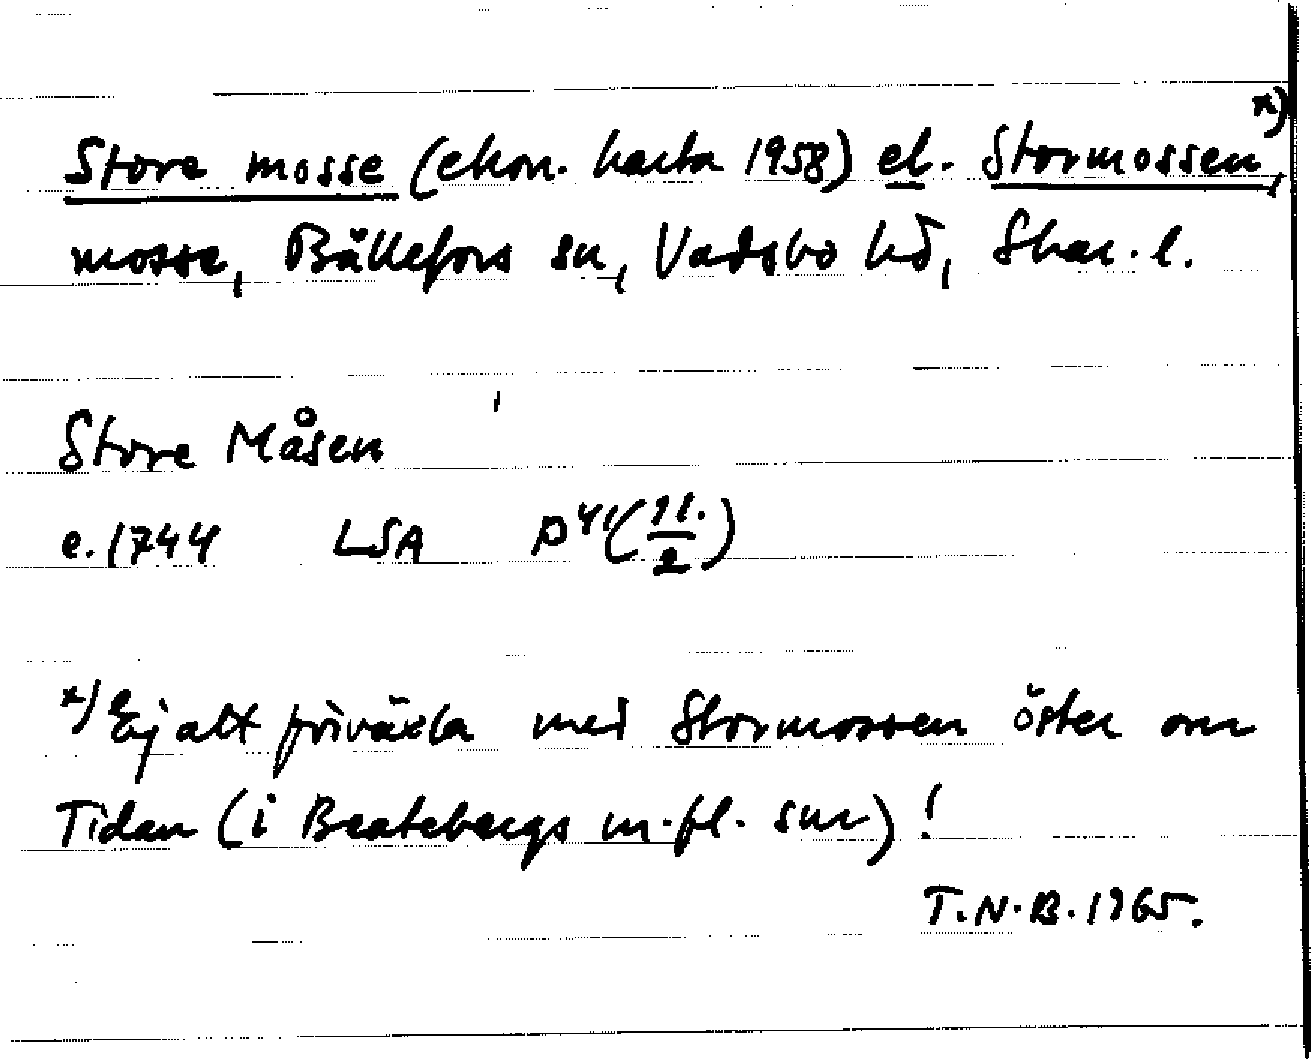 Store mosse (ekon. karta 1958) el. Stormossen x),
mosse, Bällefors sn, Vadsbo hd, Skar. l.
Store Måsen
e. 1744 LSA P 41 (11./2)
x) Ej att förväxla med Stormossen öster om
Tidan (i Beatebergs m.fl. snr)!
T.N.B. 1965.